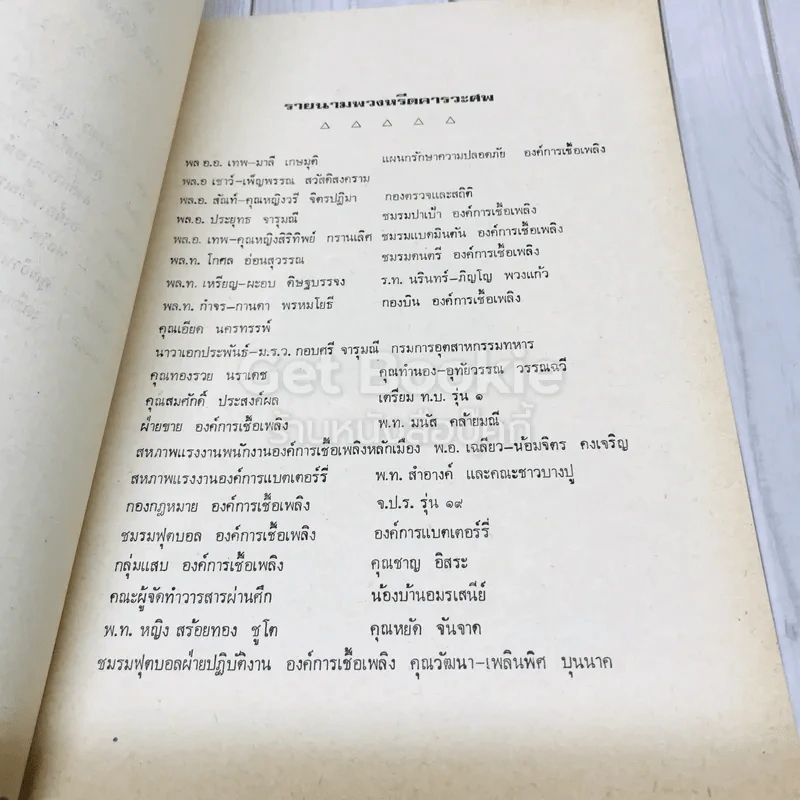 รายนามพวงหรีดคารวะศพ
△ △ △ △ △
พล อ.อ. เทพ-มาลี เกษมุติ แผนกรักษาความปลอดภัย องค์การเชื้อเพลิง
พล.อ เชาว์-เพ็ญพรรณ สวัสดิสงคราม
พล.อ. สัณห์-คุณหญิงวรี จิตรปฏิมา กองตรวจและสถิติ
พล.อ. ประยุทธ จารุมณี ชมรมปาเป้า องค์การเชื้อเพลิง
พล.อ. เทพ-คุณหญิงสิริทิพย์ กรานเลิศ ชมรมแบดมินตัน องค์การเชื้อเพลิง
พล.ท. โกศล อ่อนสุวรรณ ชมรมดนตรี องค์การเชื้อเพลิง
พล.ท. เหรียญ-ผะอบ ดิษฐบรรจง ร.ท. นรินทร์-ภิญโญ พวงแก้ว
พล.ท. กำจร-กานดา พรหมโยธี กองบิน องค์การเชื้อเพลิง
คุณเอียด นครทรรพ์
นาวาเอกประพันธ์-ม.ร.ว. กอบศรี จารุมณี กรมการอุตสาหกรรมทหาร
คุณทองรวย นราเดช คุณทำนอง-อุทัยวรรณ วรรณฉวี
คุณสมศักดิ์ ประสงค์ผล เตรียม ท.บ. รุ่น ๑
ฝ่ายขาย องค์การเชื้อเพลิง พ.ท. มนัส คล้ายมณี
สหภาพแรงงานพนักงานองค์การเชื้อเพลิงหลักเมือง พ.อ. เฉลียว-น้อมจิตร คงเจริญ
สหภาพแรงงานองค์การแบตเตอร์รี่ พ.ท. สำอางค์ และคณะชาวบางปู
กองกฎหมาย องค์การเชื้อเพลิง จ.ป.ร. รุ่น ๑๙
ชมรมฟุตบอล องค์การเชื้อเพลิง องค์การแบตเตอร์รี่
กลุ่มแสบ องค์การเชื้อเพลิง คุณชาญ อิสระ
คณะผู้จัดทำวารสารผ่านศึก น้องบ้านอมรเสนีย์
พ.ท. หญิง สร้อยทอง ชูโต คุณหยัด จันจาด
ชมรมฟุตบอลฝ่ายปฏิบัติงาน องค์การเชื้อเพลิง คุณวัฒนา-เพลินพิศ บุนนาค
Get Bookie
ร้านหนังสือบุ๊คกี้